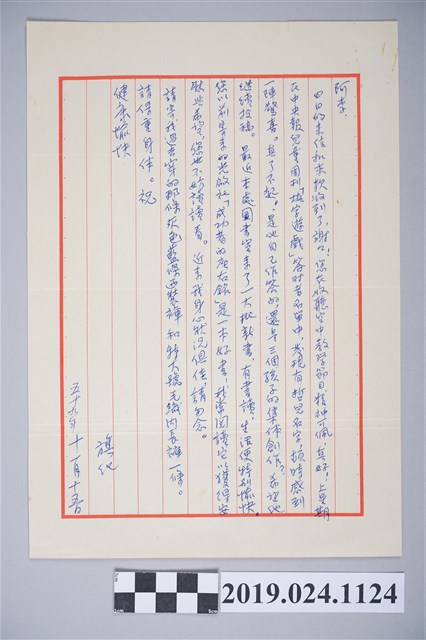 阿李：
四日的來信和末款收到了，謝謝！您在收聽空中教學節目精神可佩，真好！上星期
在中央報兒童周刊「填字遊戲」答對者名單中，發現有哲兒名字，頓時感到
一陣驚喜。真了不起！是他自己作答的，還是三個孩子的集体創作？希望他
繼續投稿。最近本處圖書室來了一大批新書，有書讀，生活便特別愉快。
您以前年來的光啟社「成功者的座右銘」是一本好書，我常閱讀它以獲得安
慰與希望，您也不妨讀讀看。近來我身心狀況俱佳，請勿念。
請寄我過去穿的那條灰色藍條西裝褲和特大號毛織內長褲一條。
請保重身体。祝
健康愉快
旗化
五十九年十一月十五日
1cm
5cm
2019.024.1124